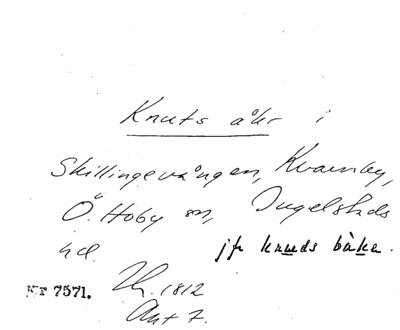 Knuts åkr i
Skillingevången, Kvarnby,
Ö. Hoby sn, Ingelstads
hd. jfr knuds båke.
Nr 7571. 1812
Akt 7.